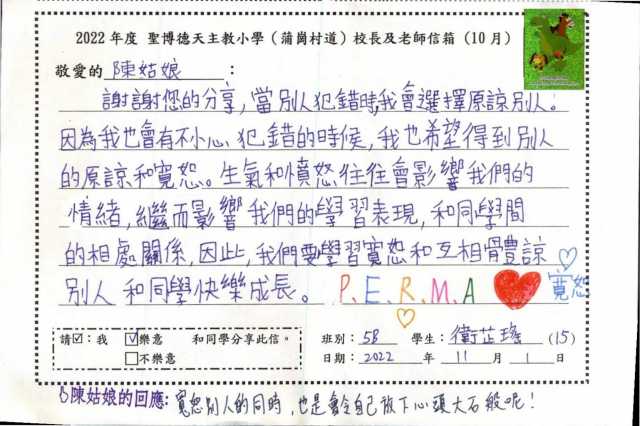 2022年度 聖博德天主教小學（蒲崗村道）校長及老師信箱（10月）
敬愛的 陳姑娘：
謝謝您的分享，當別人犯錯時，我會選擇原諒別人。
因為我也會有不小心犯錯的時候，我也希望得到別人
的原諒和寬恕。生氣和憤怒往往會影響我們的
情緒，繼而影響我們的學習表現，和同學間
的相處關係，因此，我們要學習寬恕和互相體諒
別人 和同學快樂成長。 P.E.R.M.A 寬恕
請☑：我 ☑樂意 和同學分享此信。
□不樂意
班別：5B 學生：衛芷 (15)
日期：2022 年 11 月 1 日
陳姑娘的回應：寬恕別人的同時，也是會令自己放下心頭大石般呢！